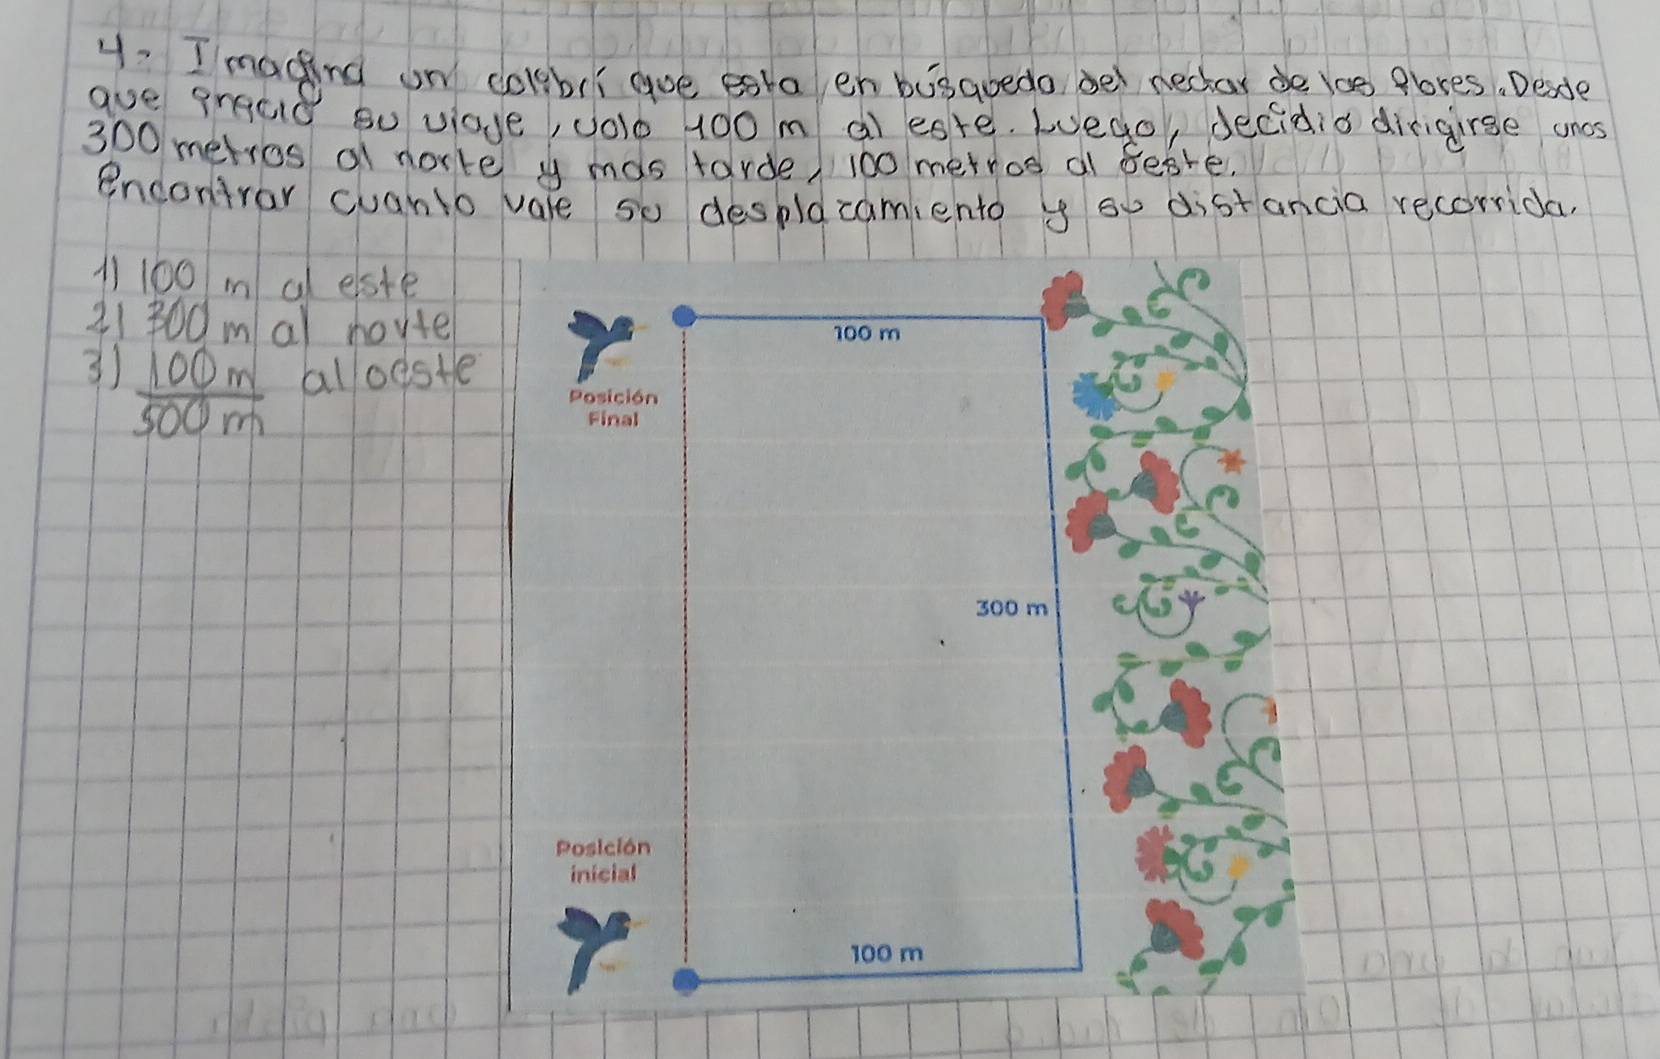 4- Imagina un colibrí que esta en búsqueda del nectar de las flores. Desde
que inició su viaje, volo 100 m al este. Luego, decidió dirigirse unos
300 metros al norte y mas tarde, 100 metros al oeste.
Encontrar cuanto vale su desplazamiento y su distancia recorrida.
1) 100 m al este
2) 300 m al norte
3) 100 m al oeste
500 m
100 m
Posición
Final
300 m
Posición
inicial
100 m